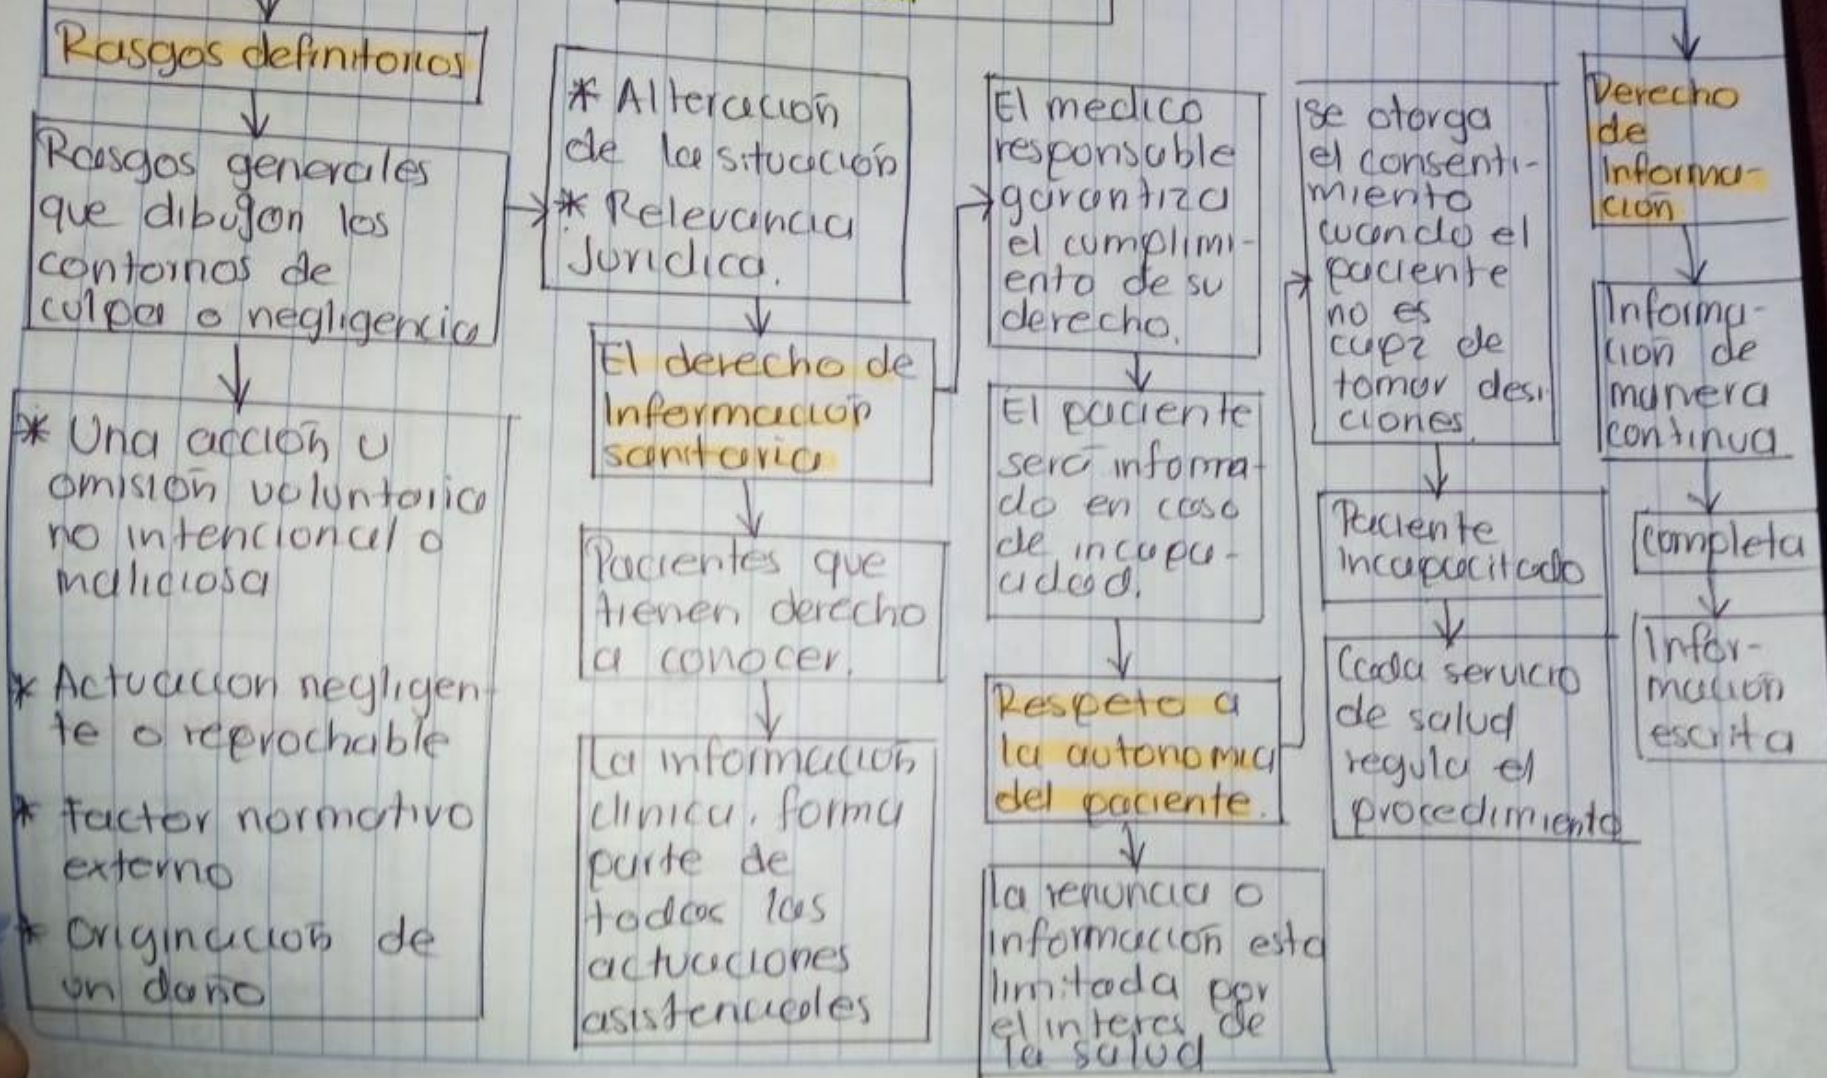 Rasgos definitorios
Rasgos generales
que dibujan los
contornos de
culpa o negligencia
* Una acción u
omisión voluntaria
no intencional o
maliciosa
* Actuacion negligen
te o reprochable
* factor normativo
externo
* originación de
un daño
* Altercación
de la situación
* Relevancia
Juridica.
El derecho de
Información
sanitaria
Pacientes que
tienen derecho
a conocer.
La información
clinica. forma
parte de
todas las
actuaciones
asistenciales
El medico
responsable
garantiza
el cumplimi-
ento de su
derecho.
El paciente
será informa
do en caso
de incapa-
cidad.
Respeto a
la autonomia
del paciente.
la renuncia o
información esta
limitada por
el interes de
la salud
se otorga
el consenti-
miento
cuando el
paciente
no es
capz de
tomar desi
ciones.
Paciente
incapacitado
Ccada servicio
de salud
regula el
procedimiento
Derecho
de
Informa-
ción
Informa-
ción de
manera
continua
completa
Infor-
mación
escrita